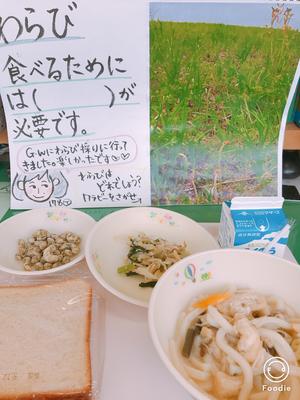 わらび
食べるために
は(　　　)が
必要です。
G.Wにわらび採りに行って
きました。楽しかったです♡
わらびは
どれでしょう?
Foodie